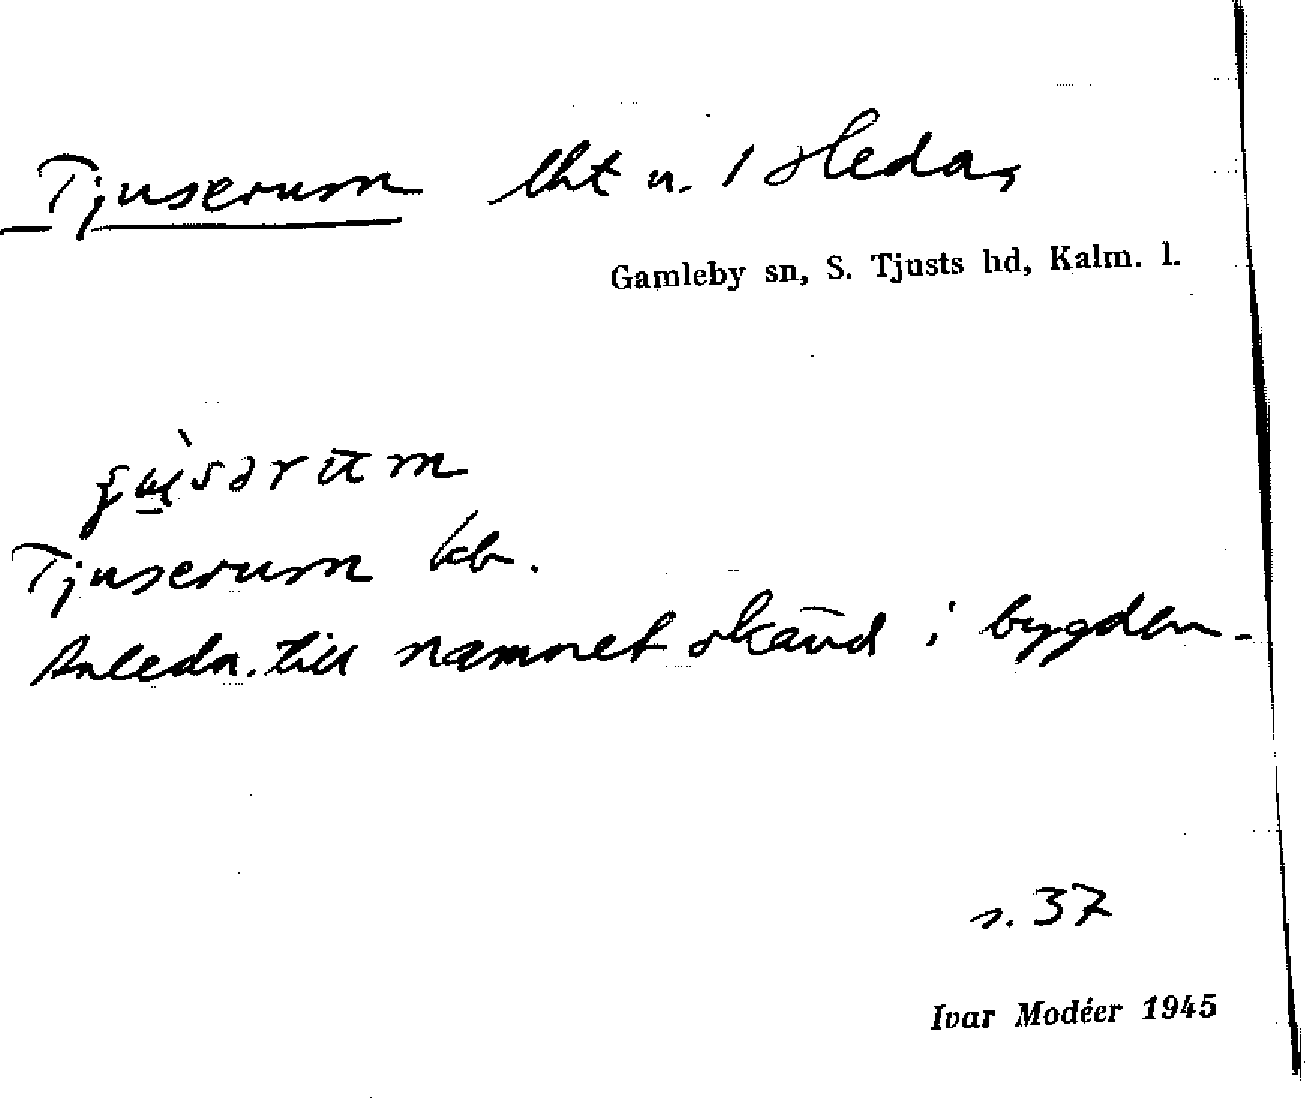 Tjuserum lht u. 1 Heda,
Gamleby sn, S. Tjusts hd, Kalm. l.
Tjuserum kb.
Anledn. till namnet okänd i bygden.
s. 37
Ivar Modéer 1945